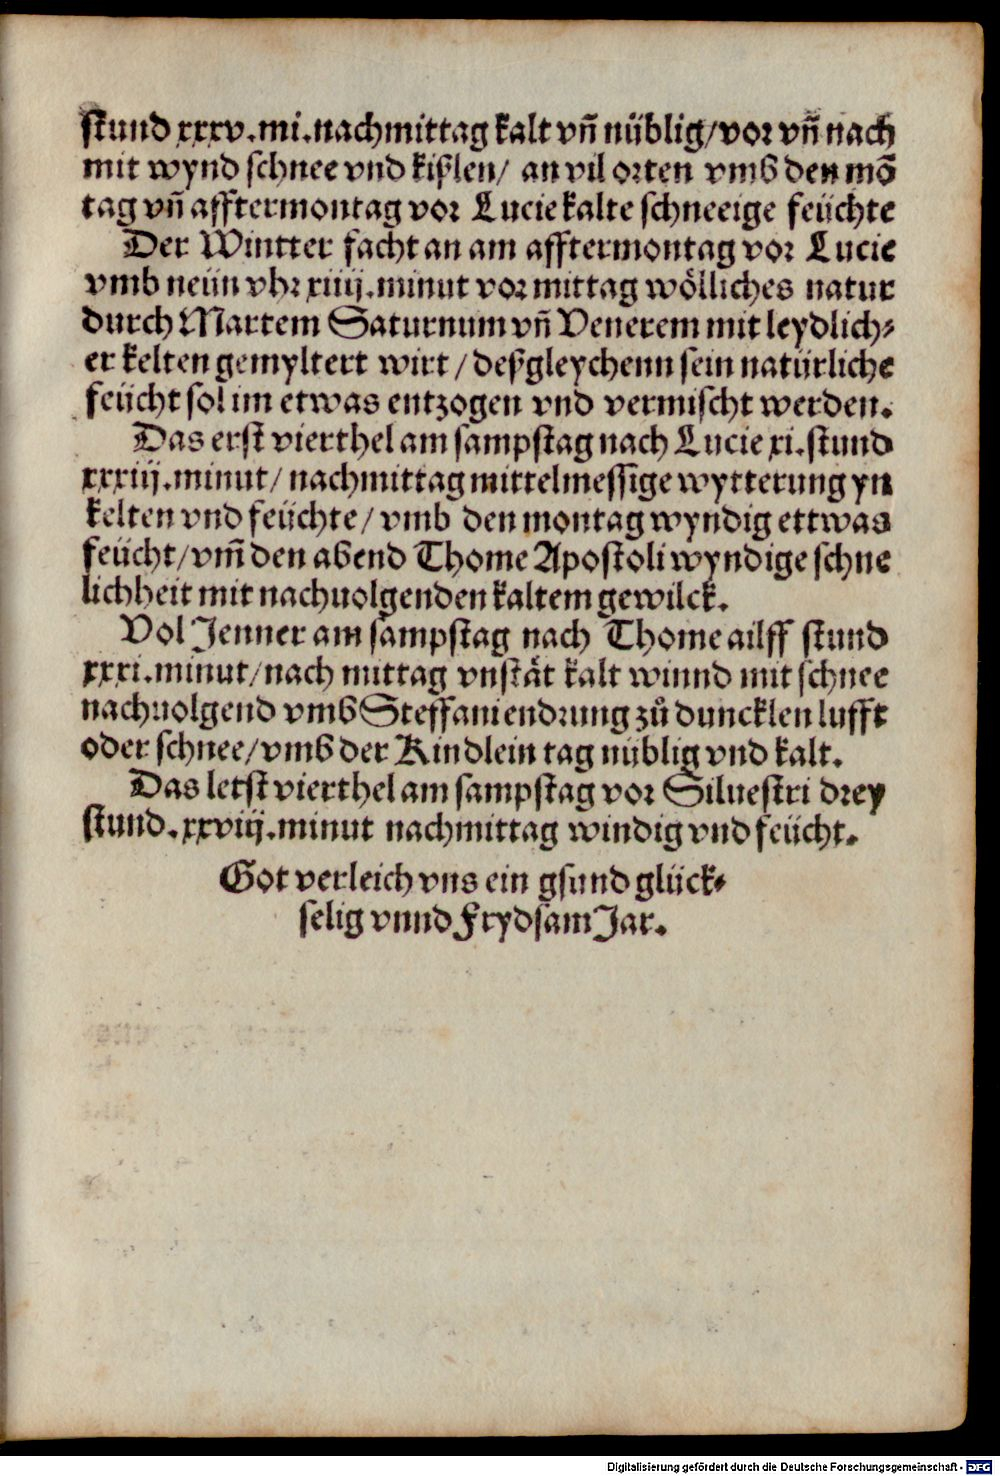 stund xxxv.mi.nachmittag kalt vñ nüblig/vor vñ nach
mit wynd schnee vnd kißlen/ an vil orten vmb den mō
tag vñ afftermontag vor Lucie kalte schneeige feüchte
Der Wintter facht an am afftermontag vor Lucie
vmb neün vhr xiiij.minut vor mittag wölliches natur
durch Martem Saturnum vñ Venerem mit leydlich⸗
er kelten gemyltert wirt / deßgleychenn sein natürliche
feücht sol im etwas entzogen vnd vermischt werden.
Das erst vierthel am sampstag nach Lucie xi.stund
xxxiij.minut/ nachmittag mittelmessige wytterung yn
kelten vnd feüchte/ vmb den montag wyndig ettwas
feücht/vm̄ den abend Thome Apostoli wyndige schne
lichheit mit nachuolgenden kaltem gewilck.
Vol Jenner am sampstag nach Thome ailff stund
xxxi.minut/nach mittag vnstät kalt winnd mit schnee
nachuolgend vmb Steffani endrung zů duncklen lufft
oder schnee/vmb der Kindlein tag nüblig vnd kalt.
Das letst vierthel am sampstag vor Siluestri drey
stund.xxviij.minut nachmittag windig vnd feücht.
Got verleich vns ein gsund glück⸗
selig vnnd Frydsam Jar.
Digitalisierung gefördert durch die Deutsche Forschungsgemeinschaft - DFG